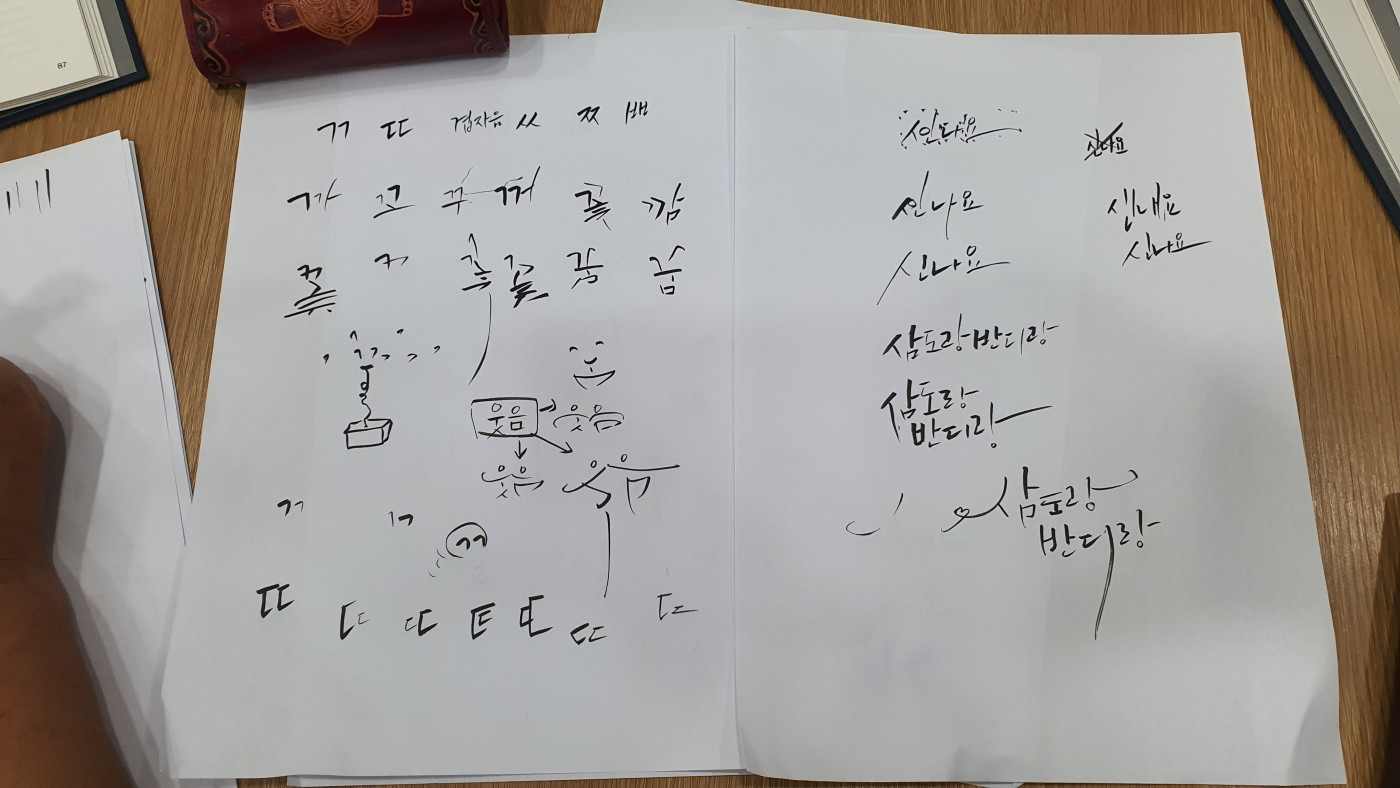 87
ㄲ ㄸ 겹자음 ㅆ ㅉ 빼
까 꼬 꾸 꺼 꽃 깜
꽃 꿈 꿈
웃음 웃음
웃음 웃음
ㄲ ㄲ ㄲ
ㄸ ㄸ ㄸ ㄸ ㄸ ㄸ ㄸ
신나요
신나요
신나요
신나요
신나요
삼도랑반디랑
삼도랑
반디랑
삼도랑
반디랑